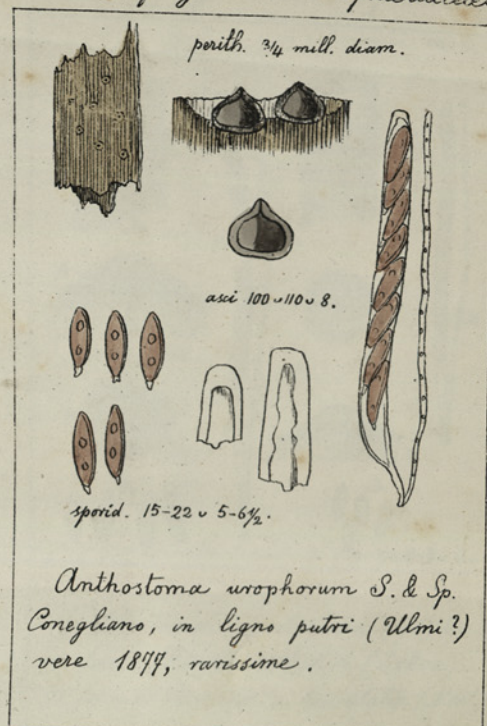 perith. ¾ mill. diam.
asci 100 ᴗ 110 ᴗ 8.
sporid. 15-22 ᴗ 5-6½.
Anthostoma urophorum S. & Sp.
Conegliano, in ligno putri (Ulmi?)
vere 1877, rarissime.